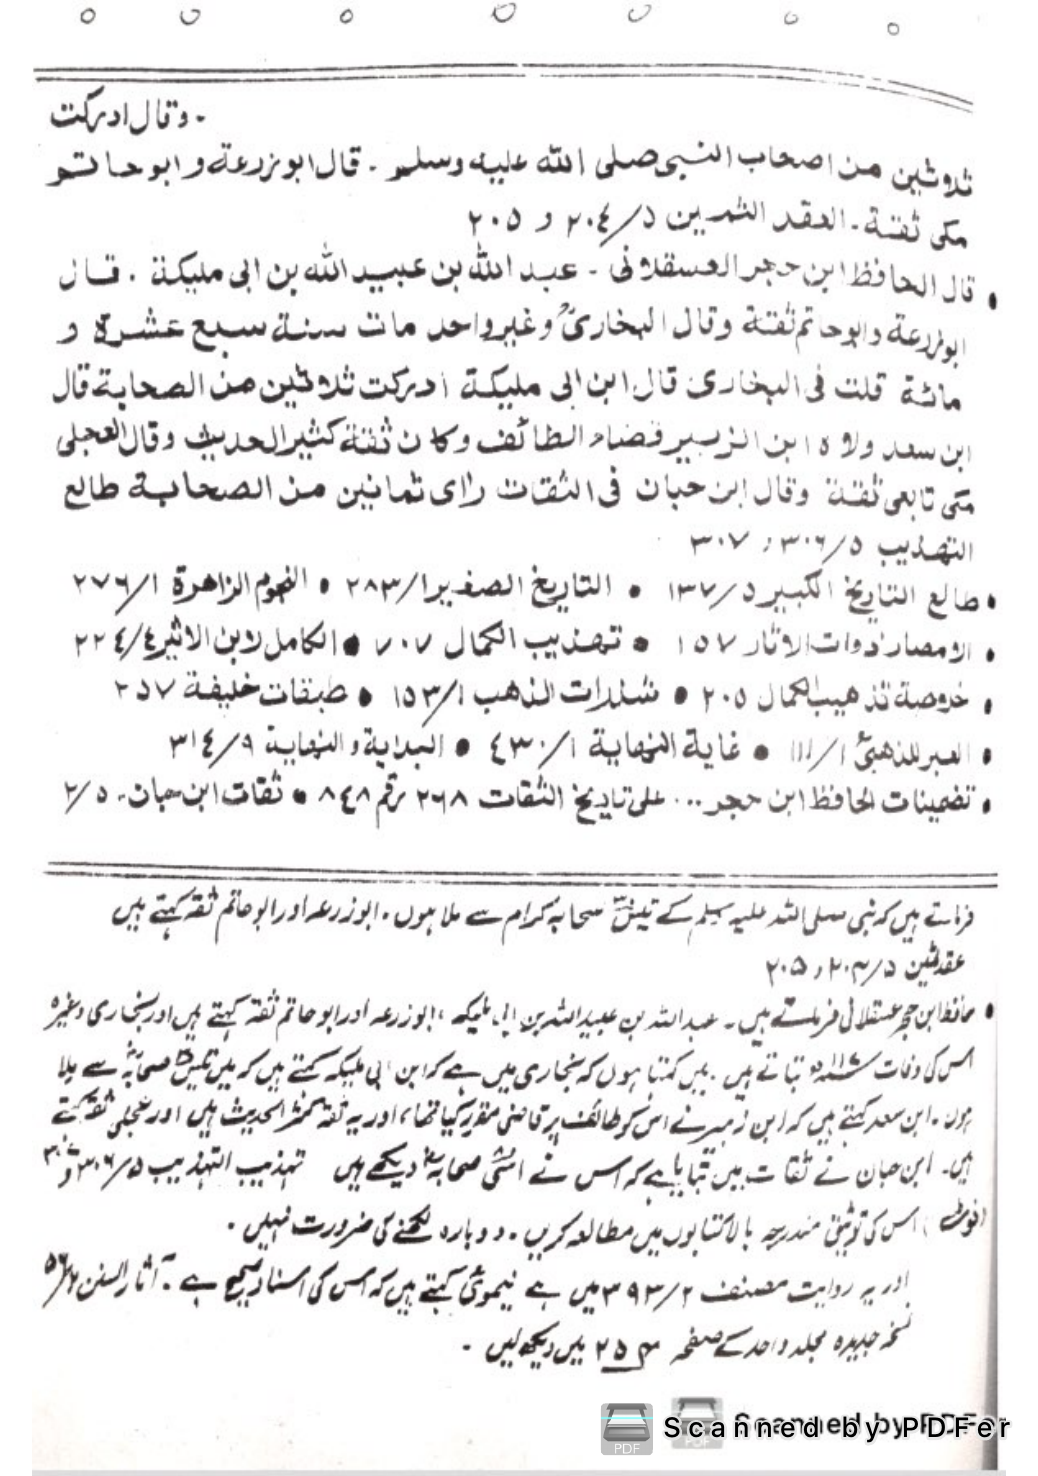 ۔ وقال ادركت
ثلاثين من اصحاب النبی صلی الله عليه وسلم ۔ قال ابو زرعة و ابو حاتم
مکی ثقة ۔ العقد الثمين ٥/٢٠٤ و ٢٠٥
• قال الحافظ ابن حجر العسقلانی ۔ عبد الله بن عبيد الله بن ابی مليكة ۔ قال
ابو زرعة و ابو حاتم ثقة وقال البخاریؒ وغير واحد مات سنة سبع عشرة و
مائة قلت فی البخاری قال ابن ابی مليكة ادركت ثلاثين من الصحابة قال
ابن سعد ولاه ابن الزبير قضاء الطائف وكان ثقة كثير الحديث وقال العجلی
مکی تابعی ثقة وقال ابن حبان فی الثقات رای ثمانين من الصحابة طالع
التهذيب ٥/٣٠٦ و ٣٠٧
• طالع التاريخ الكبير ٥/١٣٧ • التاريخ الصغير ١/٢٨٣ • النجوم الزاهرة ١/٢٧٦
• الامصار ذوات الاثار ١٥٧ • تهذيب الكمال ٧٠٧ • الكامل لابن الاثير ٤/٢٢٤
• خلاصة تذهيب الكمال ٢٠٥ • شذرات الذهب ١/١٥٣ • طبقات خليفة ٢٥٧
• العبر للذهبیؒ ١/١١١ • غاية النهاية ١/٤٣٠ • البداية و النهاية ٩/٣١٤
• تضمينات الحافظ ابن حجر ... علی تاريخ الثقات ٢٦٨ رقم ٨٤٨ • ثقات ابن حبان ۔ ٥/٢
فرماتے ہیں کہ نبی صلی اللہ علیہ وسلم کے تیس صحابہ کرام سے ملا ہوں ۔ ابو زرعہ اور ابو حاتم ثقہ کہتے ہیں
عقد ثمین ۵/۲۰۴ و ۲۰۵
• حافظ ابن حجر عسقلانی فرماتے ہیں ۔ عبد اللہ بن عبید اللہ بن ابی ملیکہ ، ابو زرعہ اور ابو حاتم ثقہ کہتے ہیں اور بخاری وغیرہ
اس کی وفات ۱۱۷ھ بتاتے ہیں ۔ میں کہتا ہوں کہ بخاری میں ہے کہ ابن ابی ملیکہ کہتے ہیں کہ میں تیس صحابہؓ سے ملا
ہوں ۔ ابن سعد کہتے ہیں کہ ابن زبیر نے اس کو طائف پر قاضی مقرر کیا تھا ، اور یہ ثقہ کثیر الحدیث ہیں اور عجلی ثقہ کہتے
ہیں ۔ ابن حبان نے ثقات میں بتایا ہے کہ اس نے اسّی صحابہؓ دیکھے ہیں تہذیب التہذیب ۵/۳۰۶ و ۳۰۷
(نوٹ) اس کی توثیق مندرجہ بالا کتابوں میں مطالعہ کریں ۔ دوبارہ لکھنے کی ضرورت نہیں ۔
اور یہ روایت مصنف ۲/۳۹۳ میں ہے نیمویؒ کہتے ہیں کہ اس کی اسناد صحیح ہے ۔ آثار السنن ۲/۵۶
نسخہ جدیدہ مجلد واحد کے صفحہ ۲۵۴ میں دیکھ لیں ۔
Scanned by PDFer